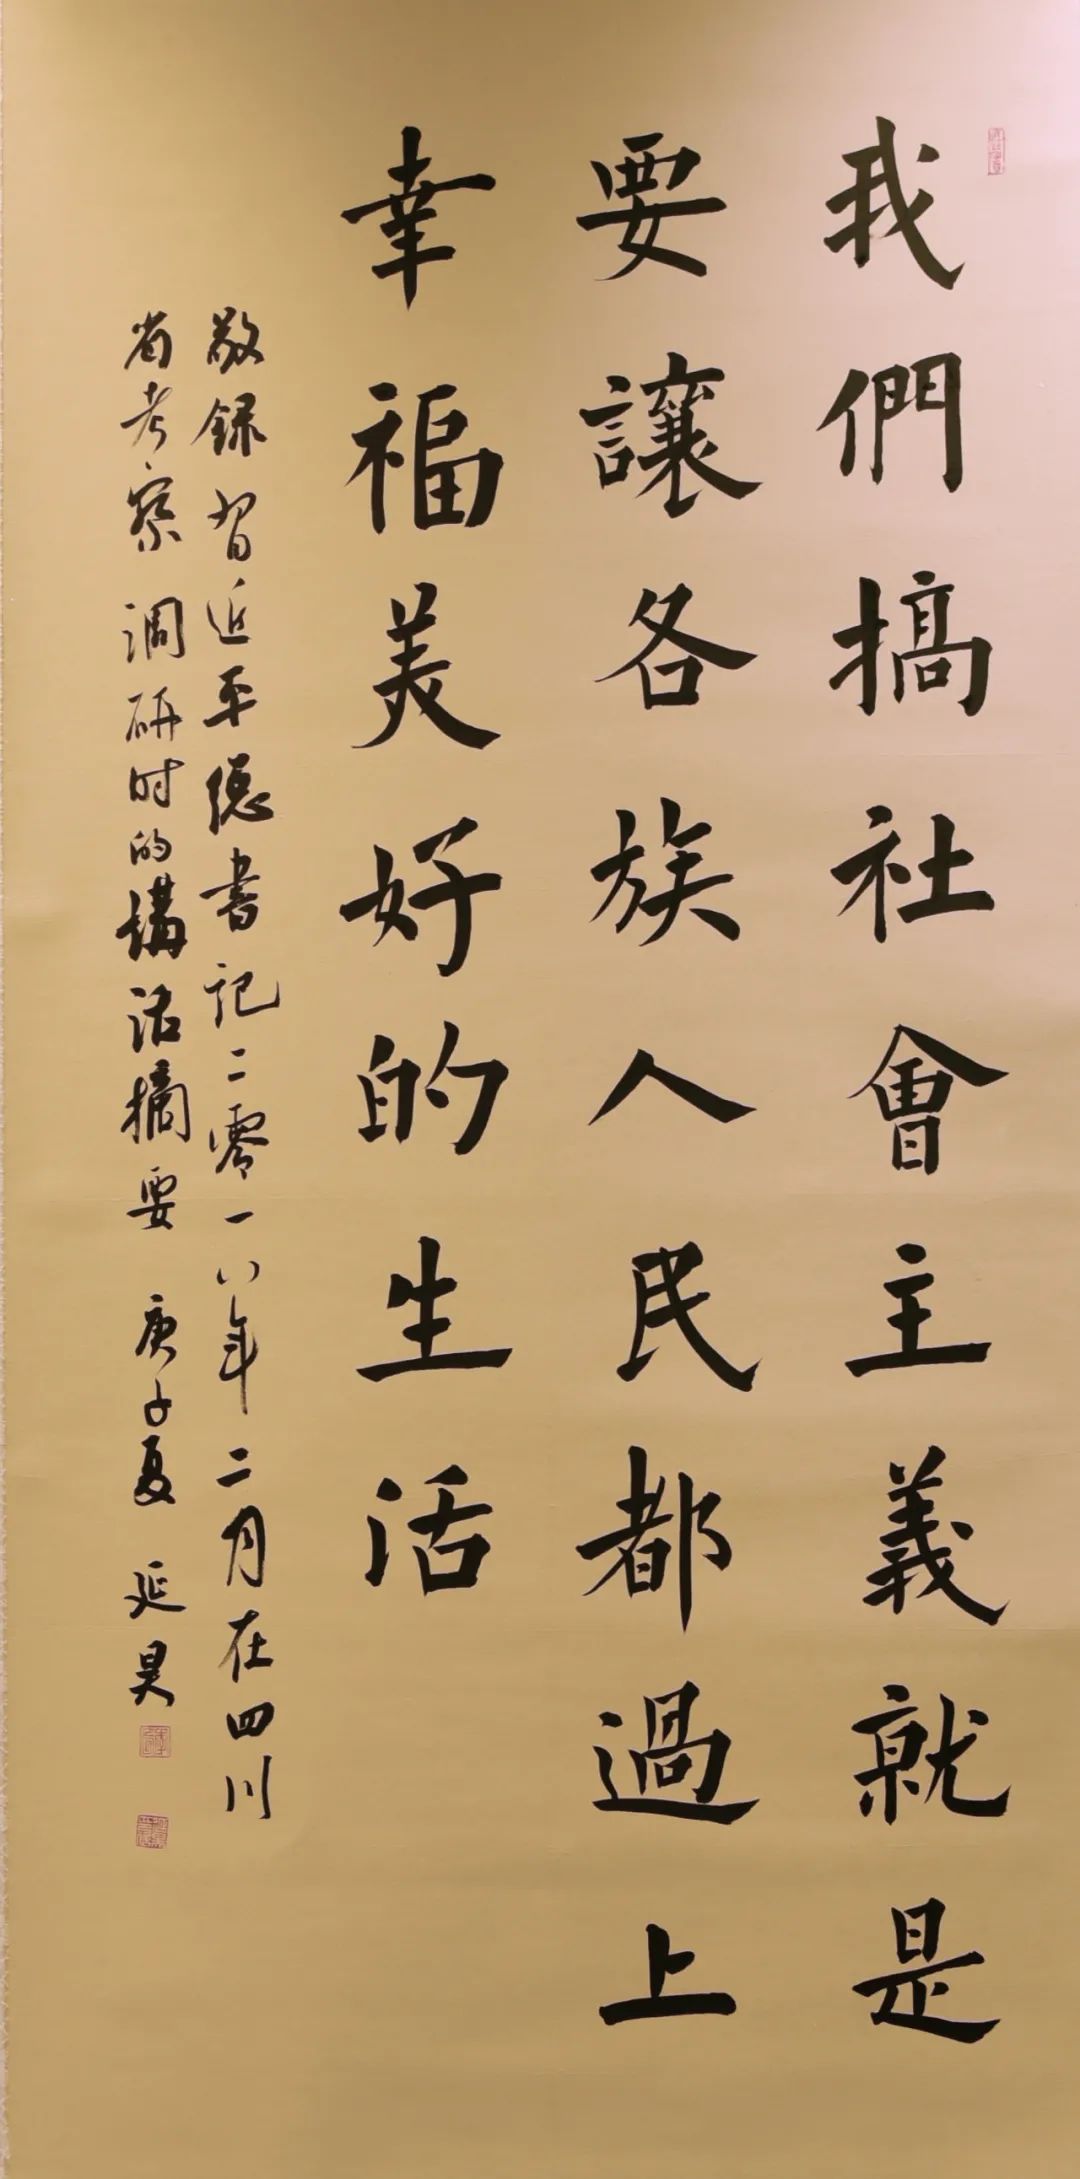 我們搞社會主義就是
要讓各族人民都過上
幸福美好的生活
敬録習近平總書記二零一八年二月在四川
省考察调研时的講話摘要 庚子夏 延昊